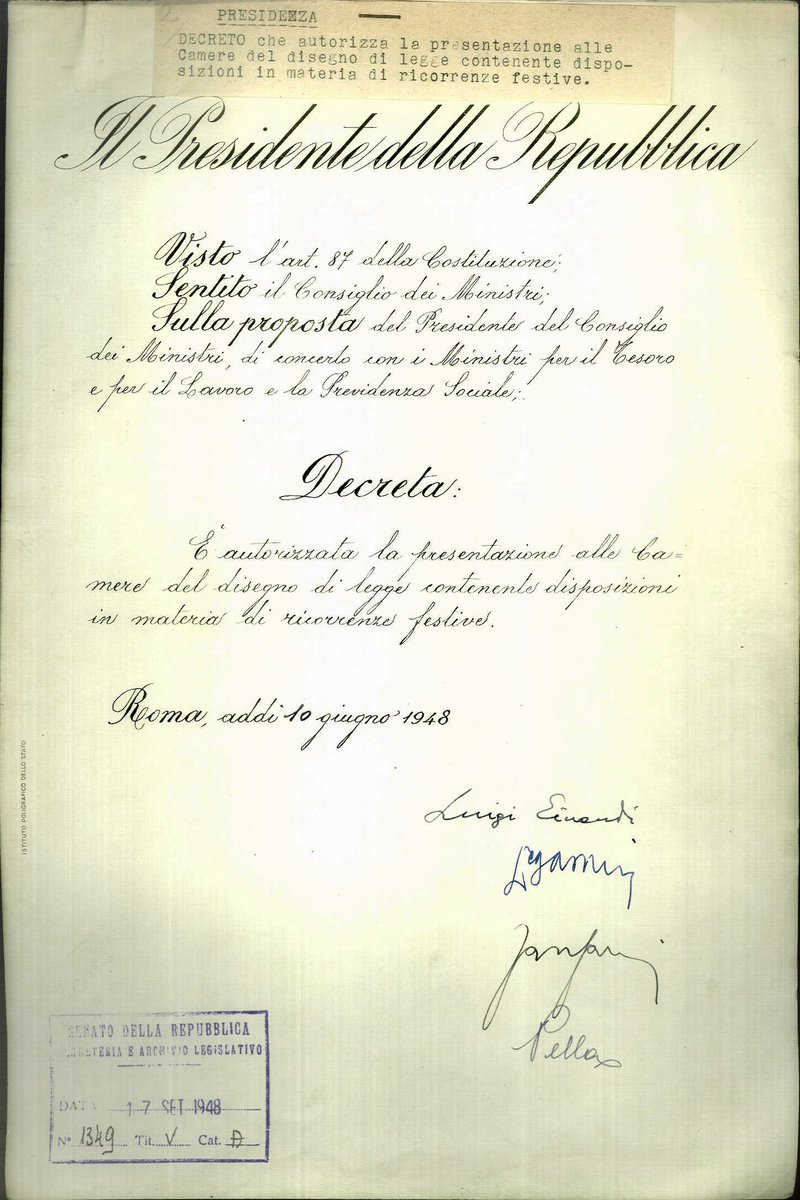 PRESIDENZA
DECRETO che autorizza la presentazione alle
Camere del disegno di legge contenente dispo-
sizioni in materia di ricorrenze festive.
Il Presidente della Repubblica
Visto l'art. 87 della Costituzione;
Sentito il Consiglio dei Ministri;
Sulla proposta del Presidente del Consiglio
dei Ministri, di concerto con i Ministri per il Tesoro
e per il Lavoro e la Previdenza Sociale;
Decreta:
E' autorizzata la presentazione alle Ca=
mere del disegno di legge contenente disposizioni
in materia di ricorrenze festive.
Roma, addi 10 giugno 1948
Luigi Einaudi
Fanfani
Pella
SENATO DELLA REPUBBLICA
SEGRETERIA E ARCHIVIO LEGISLATIVO
DATA 17 SET 1948
N° 1349 Tit. V Cat. A
ISTITUTO POLIGRAFICO DELLO STATO